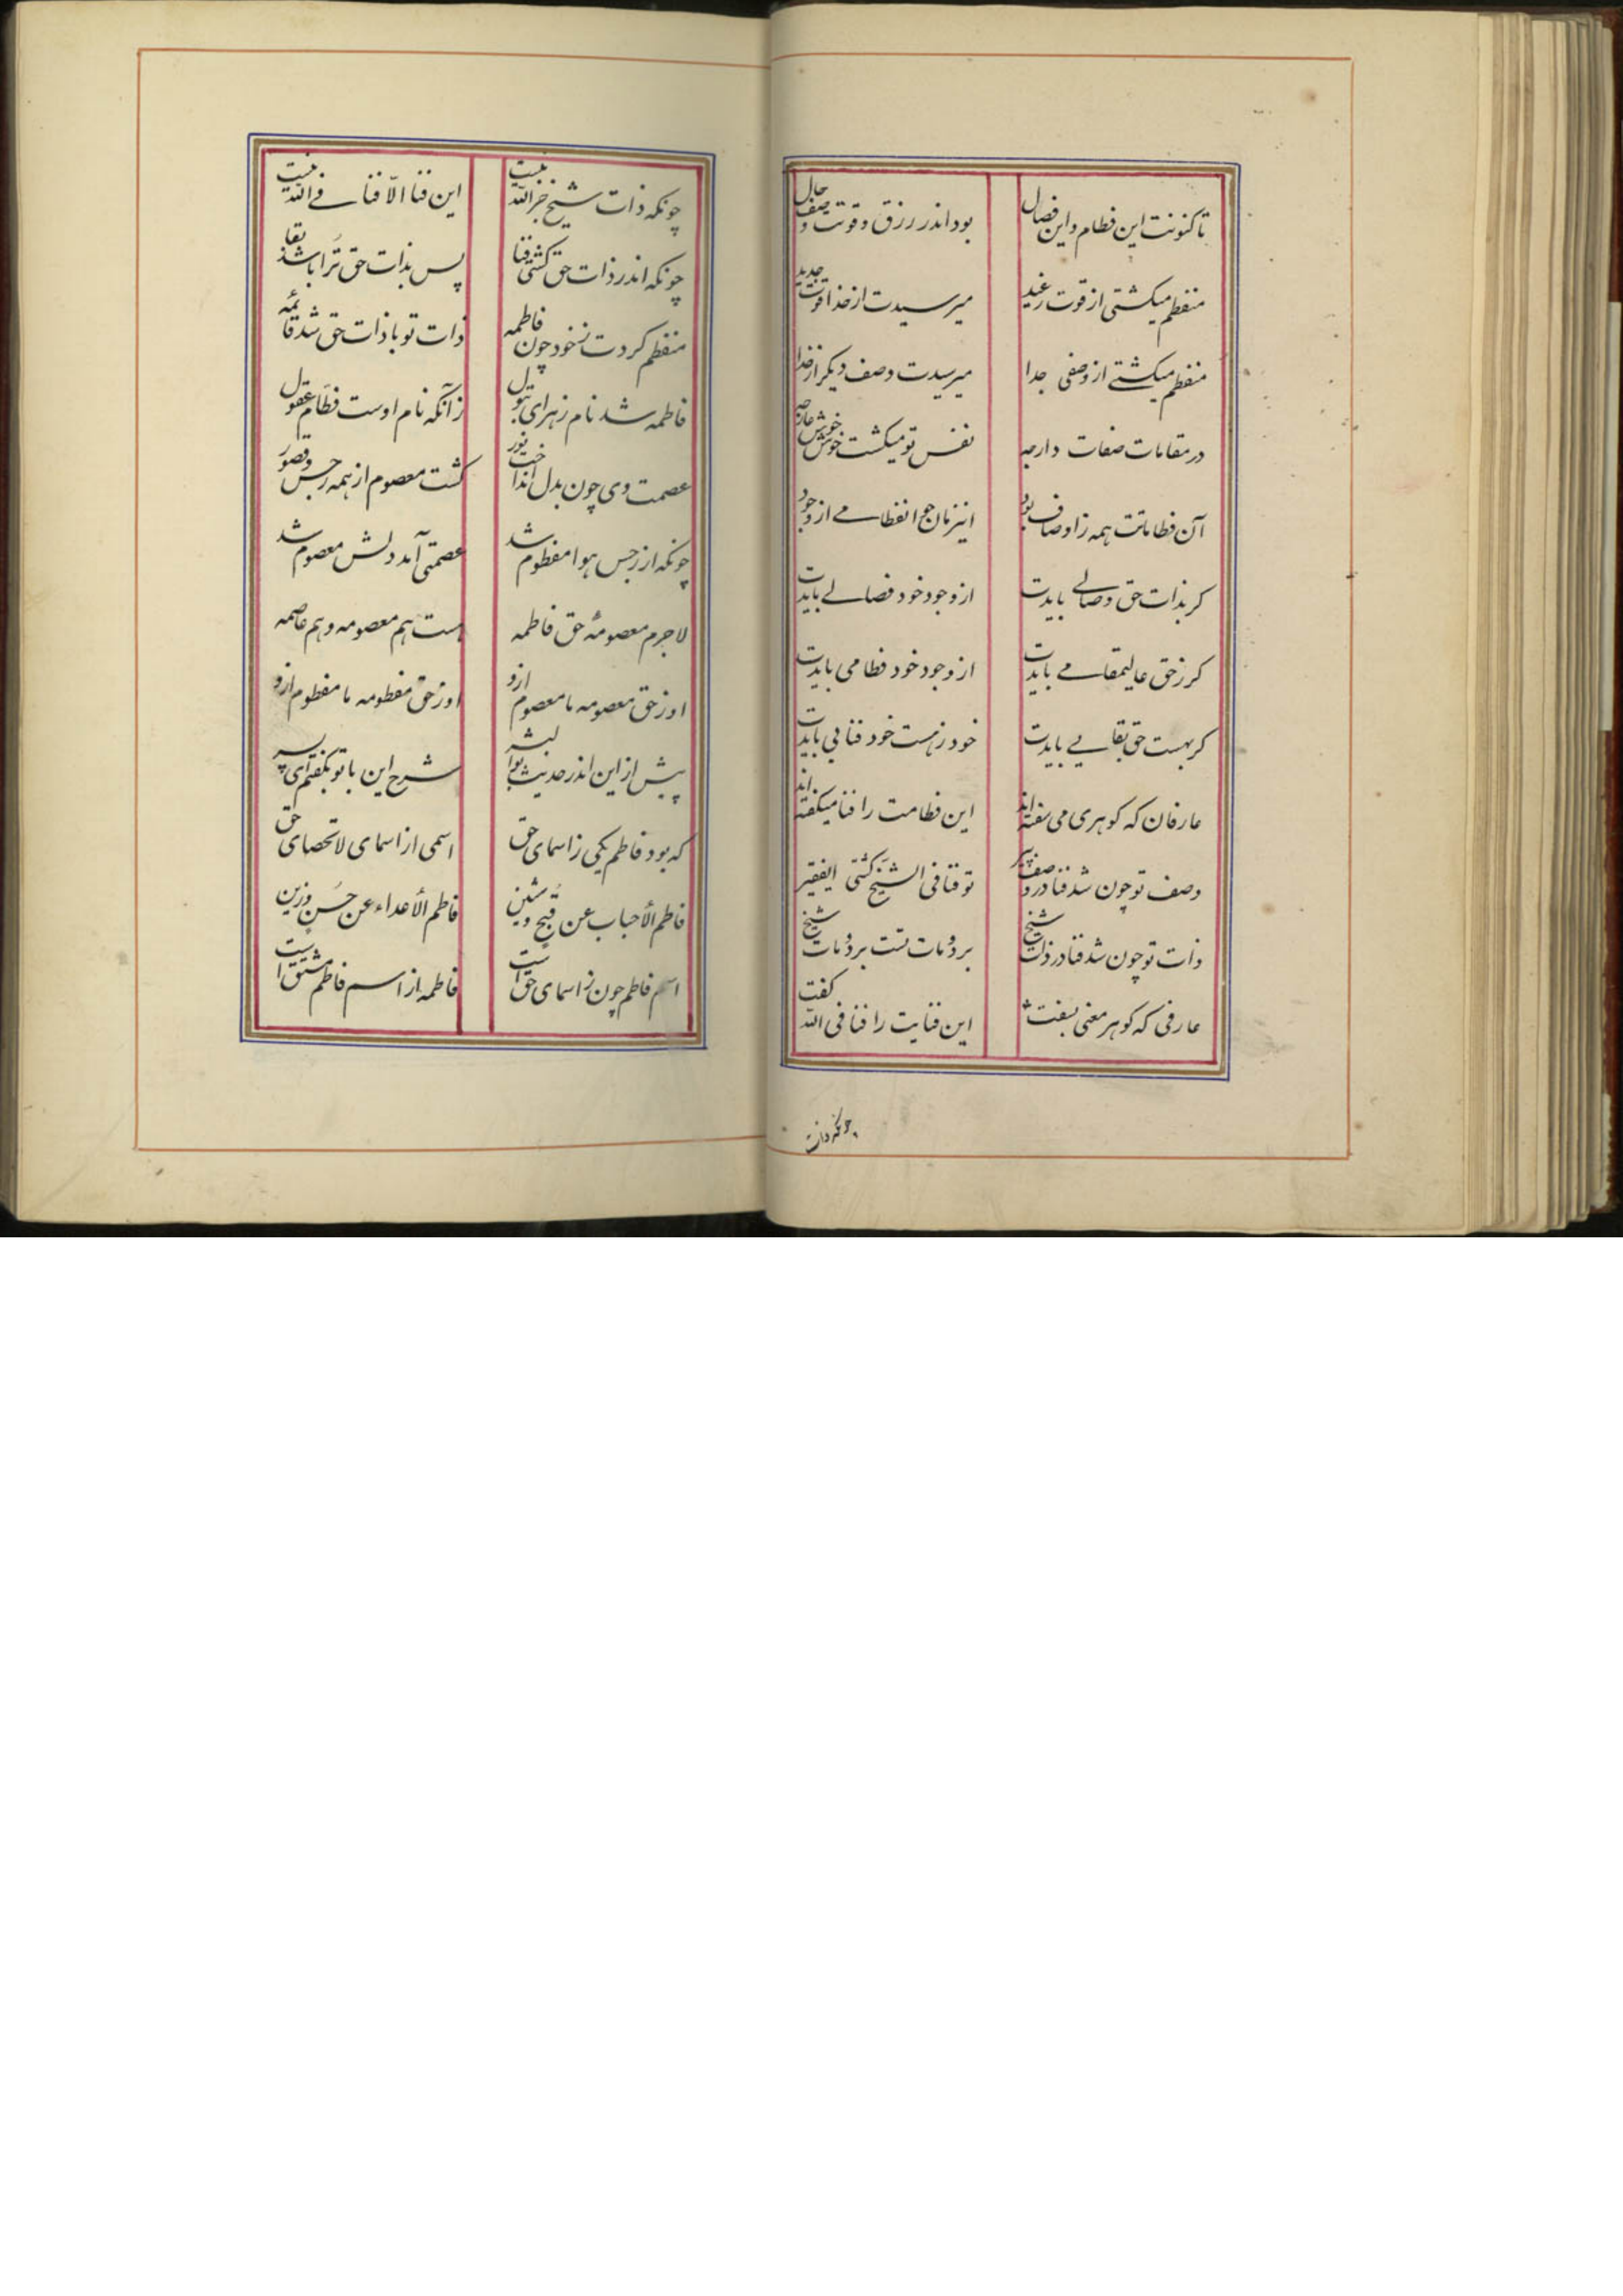 تاکنونت این فطام و این فصال بود اندر رزق و قوت وصف و حال
منفطم میکشتی از قوت رغید میرسیدت از خدا قوت جدید
منفطم میکشتے از وصفی جدا میرسیدت وصف دیکر از خدا
در مقامات صفات دارجه نفس تو میکشت خوش خوش عارجه
آن فطاماتت همه زاوصاف بود اینزمان جو انفطامے از وجود
کر بذات حق وصالے بایدت از وجود خود فصالے بایدت
کر زحق عالیمقامے بایدت از وجود خود فطامی بایدت
کر بهست حق بقایے بایدت خود زهست خود فنایی بایدت
عارفان که کوهری می سفته اند این فطامت را فنا میکفته اند
وصف تو چون شد فنا در وصف پیر تو فنا فی الشیخ کشتی ایفقیر
ذات تو چون شد فنا در ذات شیخ برد و مات تست برد و مات شیخ
عارفی که کوهر معنی بسفت این فنایت را فنا فی الله کفت
چونکه ذات
چونکه ذات شیخ جز الله نیست این فنا الّا فنا فے الله نیست
چونکه اندر ذات حق کشتی فنا پس بذات حق تُرا باشد بقا
منفطم کردت زخود چون فاطمه ذات تو با ذات حق شد قائمه
فاطمه شد نام زهرای بتول زآنکه نام اوست فطّام عقول
عصمت وی چون بدل انداخت نور کشت معصوم از همه رجس و قصور
چونکه از رجس هوا مفطوم شد عصمتی آمد دلش معصوم شد
لاجرم معصومهٔ حق فاطمه هست هم معصومه و هم عاصمه
او زحق معصومه ما معصوم ازو او زحق مفطومه ما مفطوم ازو
پیش از این اندر حدیث بوالبشر شرح این با تو بکفتم ای پسر
که بود فاطم یکی زاسمای حق اسمی از اسمای لاتحصای حق
فاطم الأحباب عن قبح وشین فاطم الأعداء عن حسن وزین
اسم فاطم چون زاسمای حق است فاطمه از اسم فاطم مشتق است